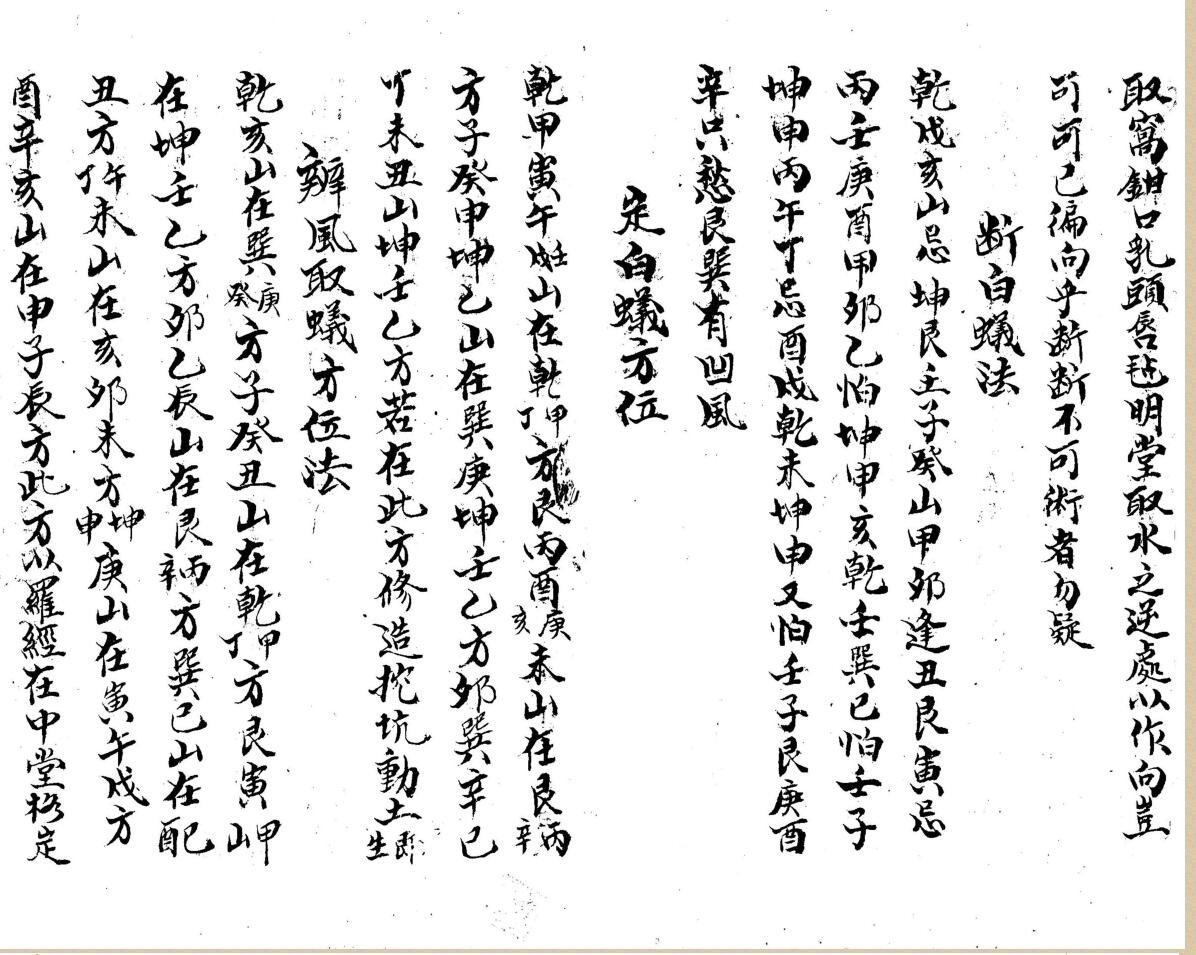 取窩鉗口乳頭唇毡明堂取水之逆處以作向豈
可可已偏向乎断断不可術者勿疑
断白蟻法
乾戌亥山忌坤艮壬子癸山甲夘逢丑艮寅忌
丙壬庚酉甲夘乙怕坤申亥乾壬巽巳怕壬子
坤申丙午丁忌酉戌乾未坤申又怕壬子艮庚酉
辛只愁艮巽有凹風
定白蟻方位
乾甲寅午戌壬山在乾甲丁方艮丙酉庚亥山在艮丙辛
方子癸申坤乙山在巽庚坤壬乙方夘巽辛巳
丁未丑山坤壬乙方若在此方修造挖坑動土即生
辦風取蟻方位法
乾亥山在巽庚癸方子癸丑山在乾甲丁方艮寅甲山
在坤壬乙方夘乙辰山在艮丙辛方巽巳山在巳酉
丑方丁午未山在亥夘未方坤申庚山在寅午戌方
酉辛亥山在申子辰方此方以羅經在中堂格定